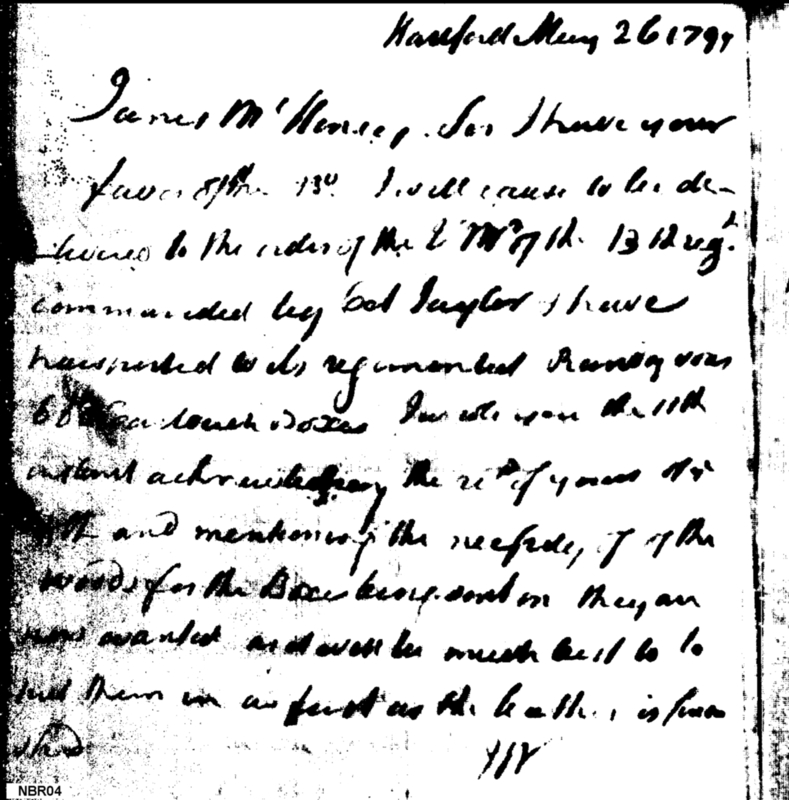 Hartford May 26 1799
James McHenry. Sir I have your
favor of the 13th I will cause to be de-
livered to the order of the Q Mr of the 13th regt.
commanded by Col Taylor & have
transported to its regimental Rendezvous
Cartouch Boxes I wrote you the 11th
instant acknowledging the rect of yours of
and mentioning the necessity of of the
woods for the Boxes being sent on they are
now wanted and will be much best to
put them in as fast as the leather is furn
ished
NBR04